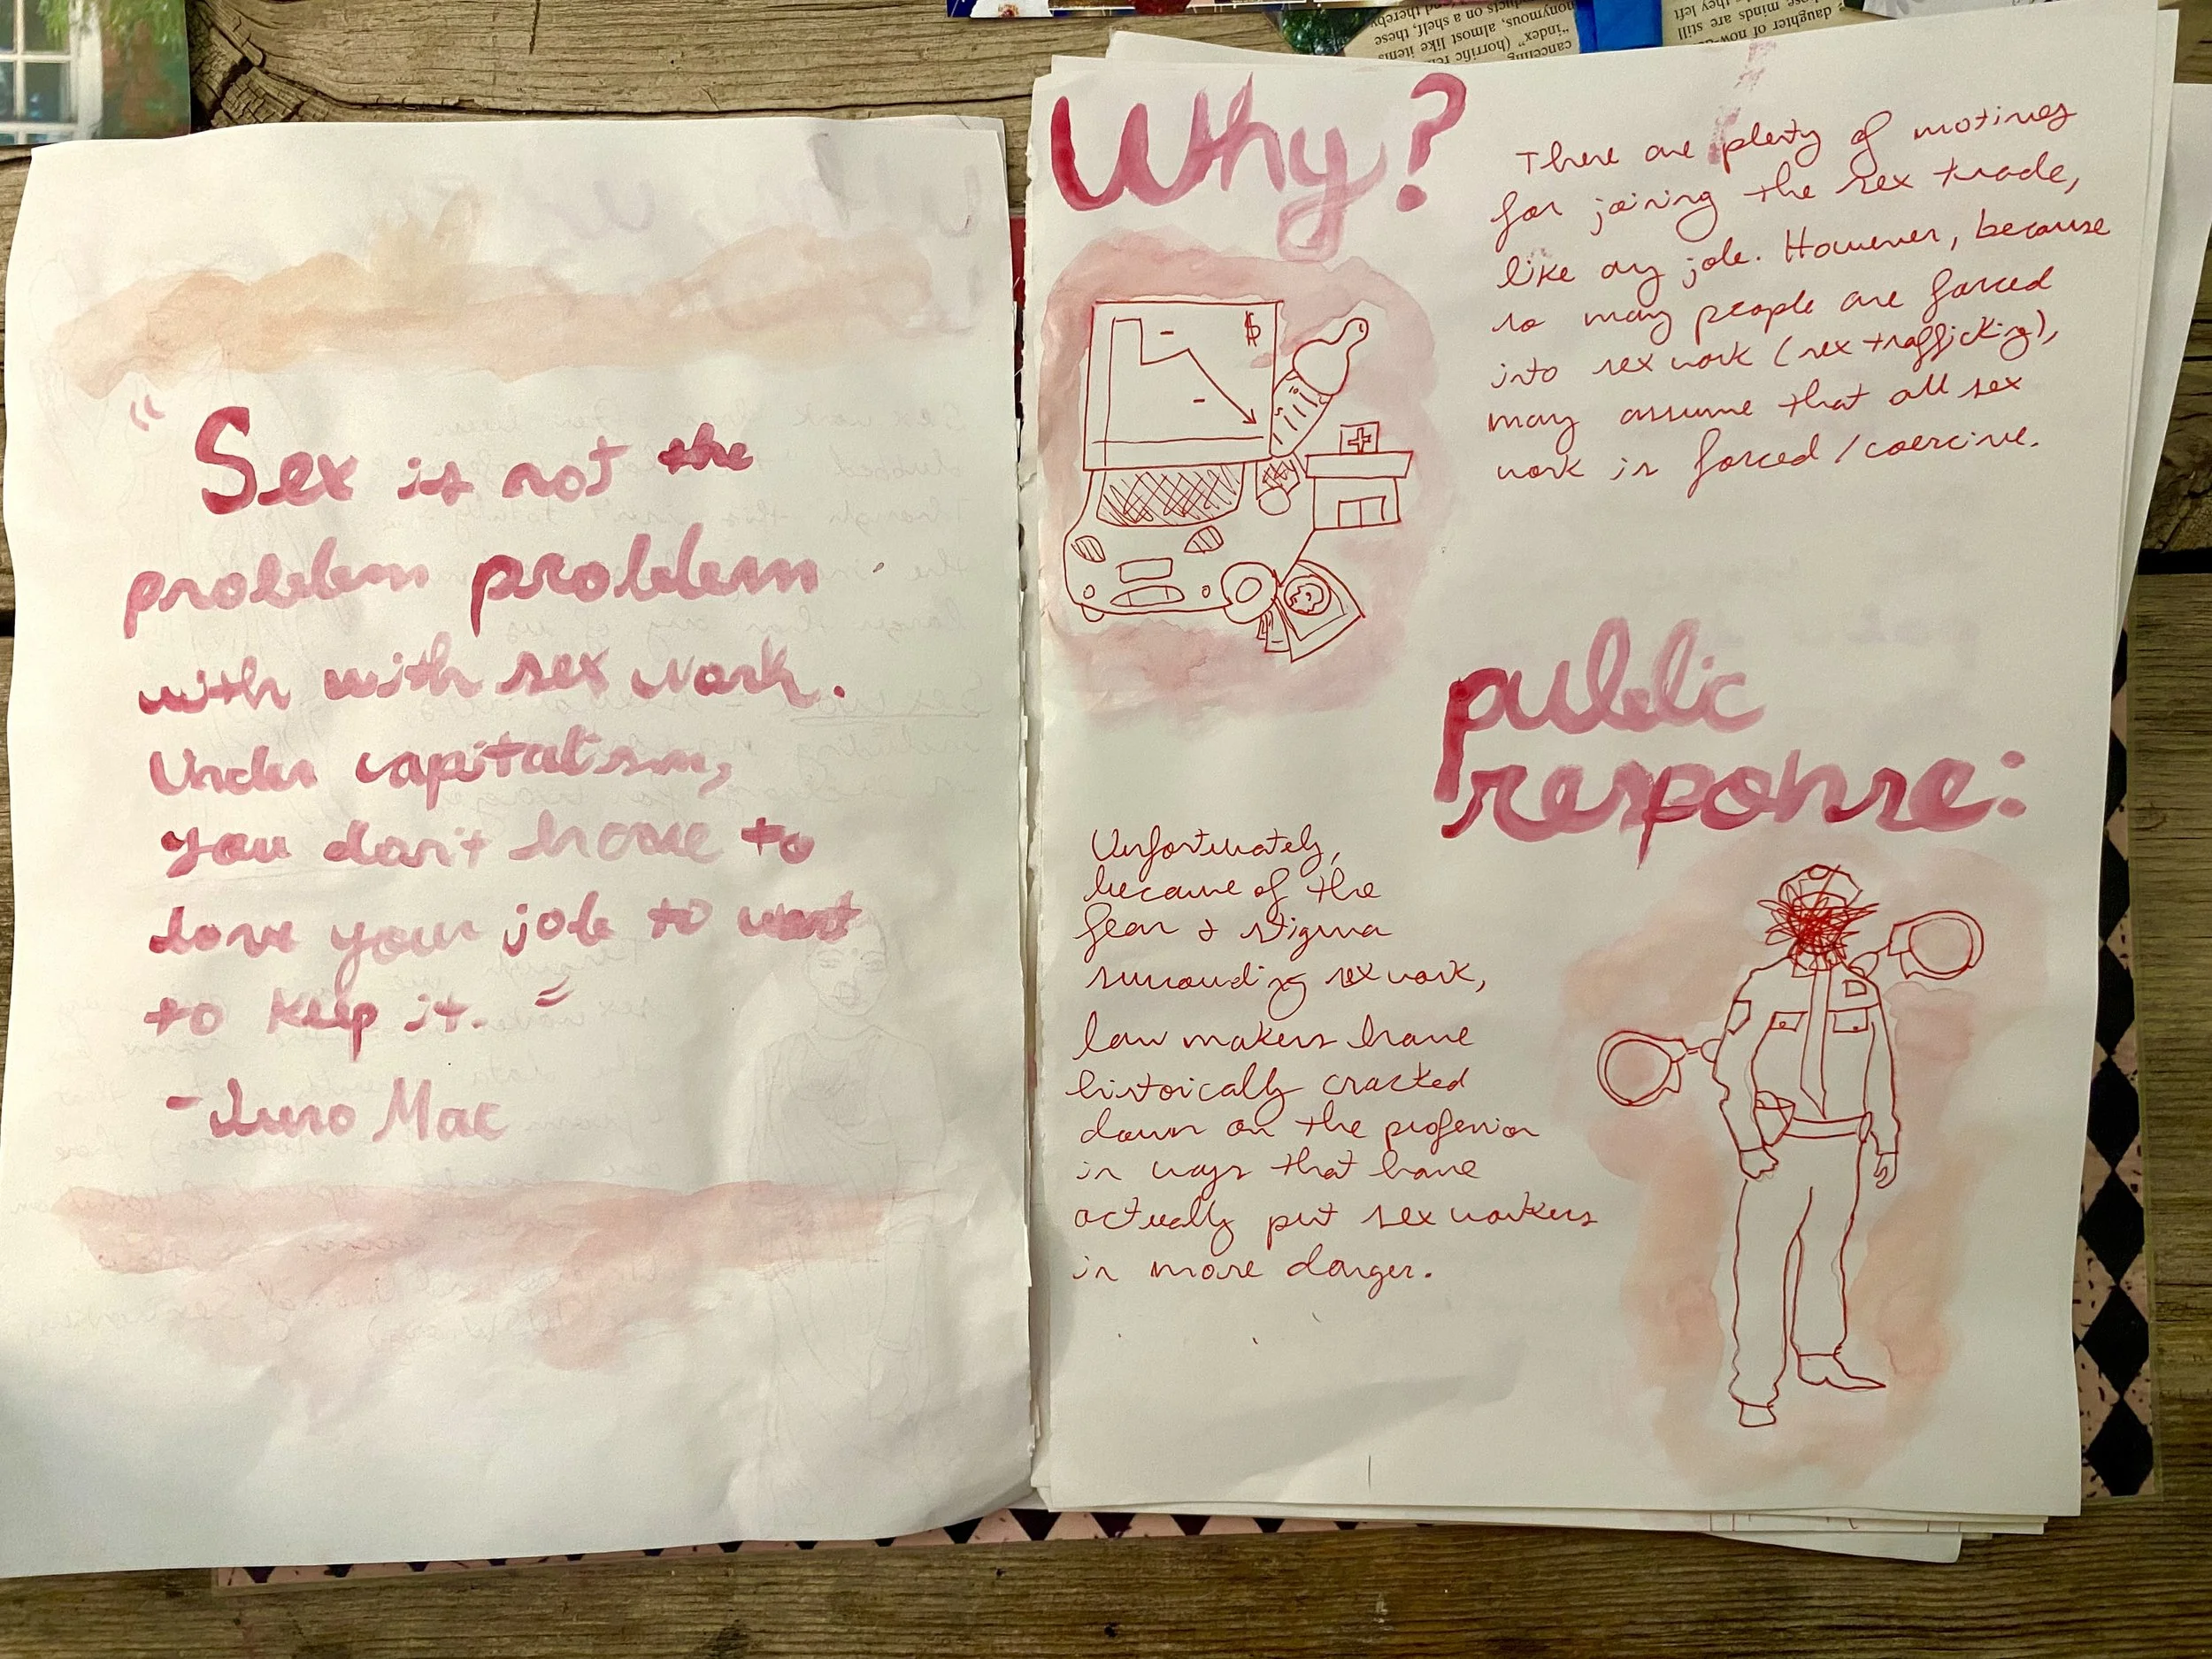 "Sex is not the
problem problem
with with sex work.
Under capitalism,
you don't have to
love your job to want
to keep it."
-Juno Mac
Why?
There are plenty of motives
for joining the sex trade,
like any job. However, because
so many people are forced
into sex work (sex trafficking),
many assume that all sex
work is forced/coercive.
$
public
response:
Unfortunately,
because of the
fear & stigma
surrounding sex work,
law makers have
historically cracked
down on the profession
in ways that have
actually put sex workers
in more danger.
cancelling
"index" (horrific
anonymous, almost like items
on a shelf, these,
daughter of now-
whose minds are still
they left